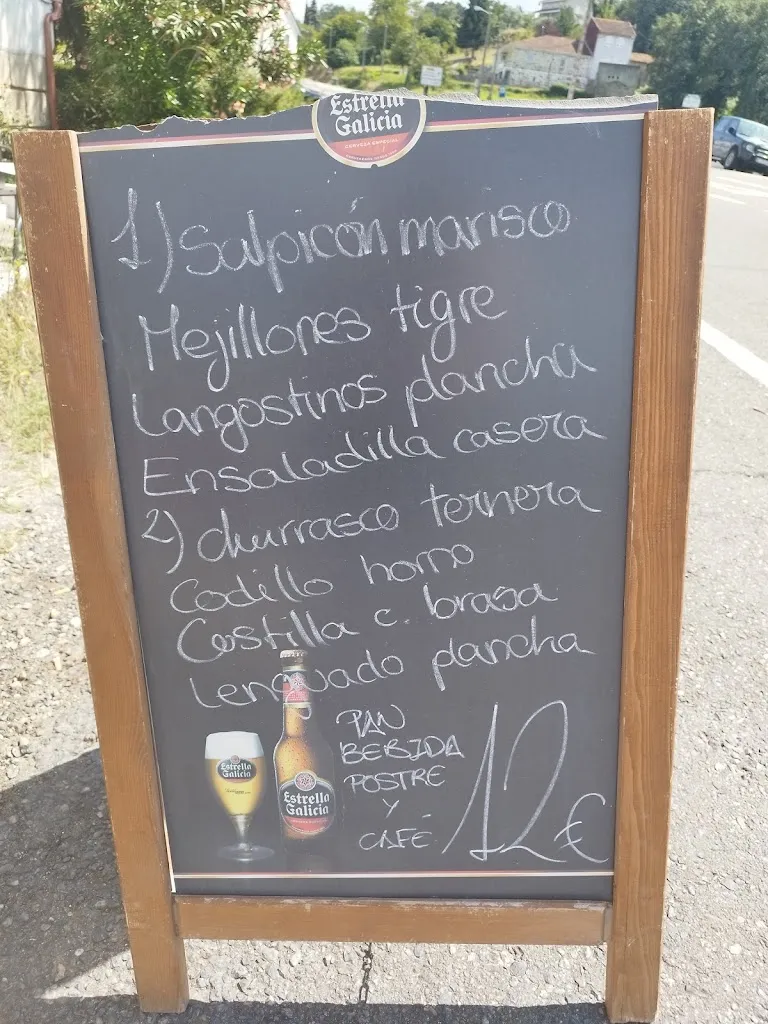 Estrella
Galicia
CERVEZA ESPECIAL
1) Salpicón marisco
Mejillones tigre
Langostinos plancha
Ensaladilla casera
2) churrasco ternera
Codillo horno
Costilla c. brasa
Lenguado plancha
PAN
BEBIDA
POSTRE
Y
CAFÉ
12€
Estrella
Galicia
Estrella
Galicia